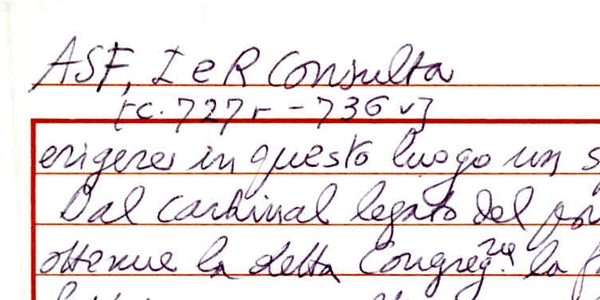 ASF, I e R Consulta
[c. 727r - 736v]
erigere in questo luogo un s
Dal cardinal legato del
ottenne la detta Congreg.ne la f